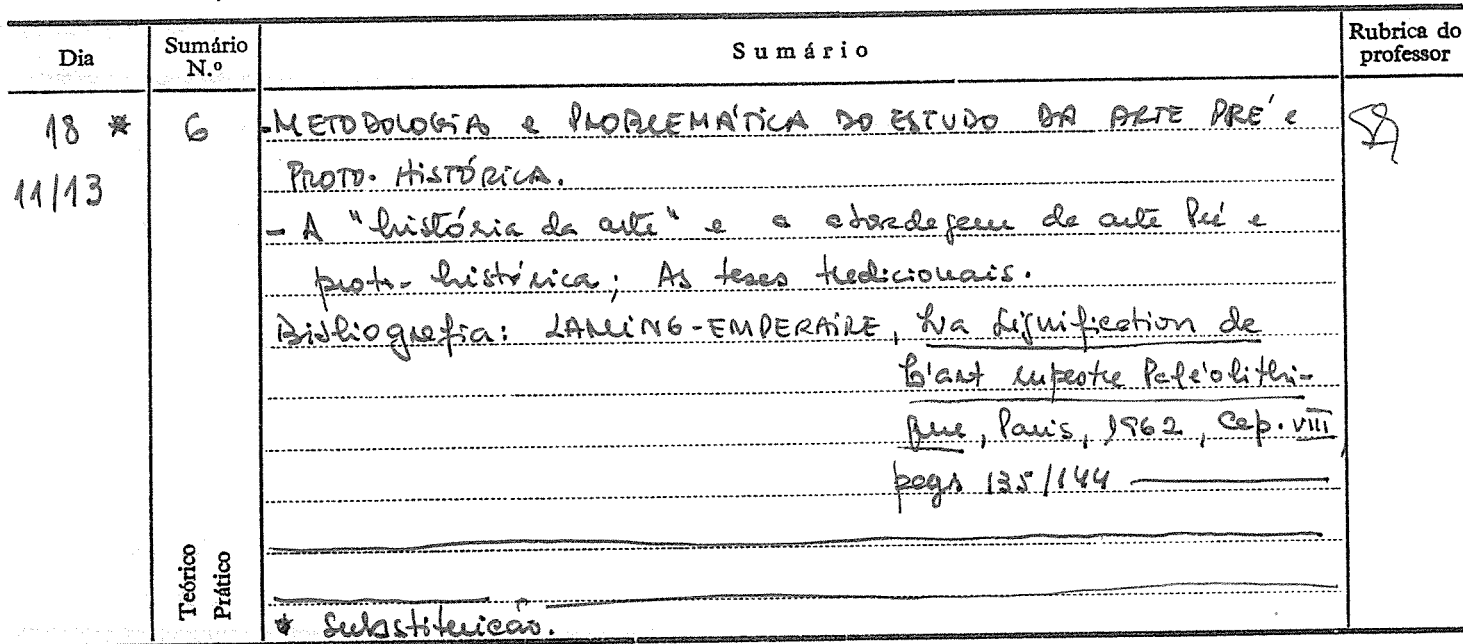 Dia
Sumário N.º
Sumário
Rubrica do professor
18 *
11/13
6
- METODOLOGIA e PROBLEMÁTICA DO ESTUDO DA ARTE PRÉ e
PROTO-HISTÓRICA.
- A "história da arte" e a abordagem da arte Pré e
proto-histórica; As teses tradicionais.
Bibliografia: LAMING-EMPERAIRE, La Signification de
l'art rupestre Paléolithi-
que, Paris, 1962, Cap. VIII,
pags 135/144
Teórico
Prático
* Substituição.